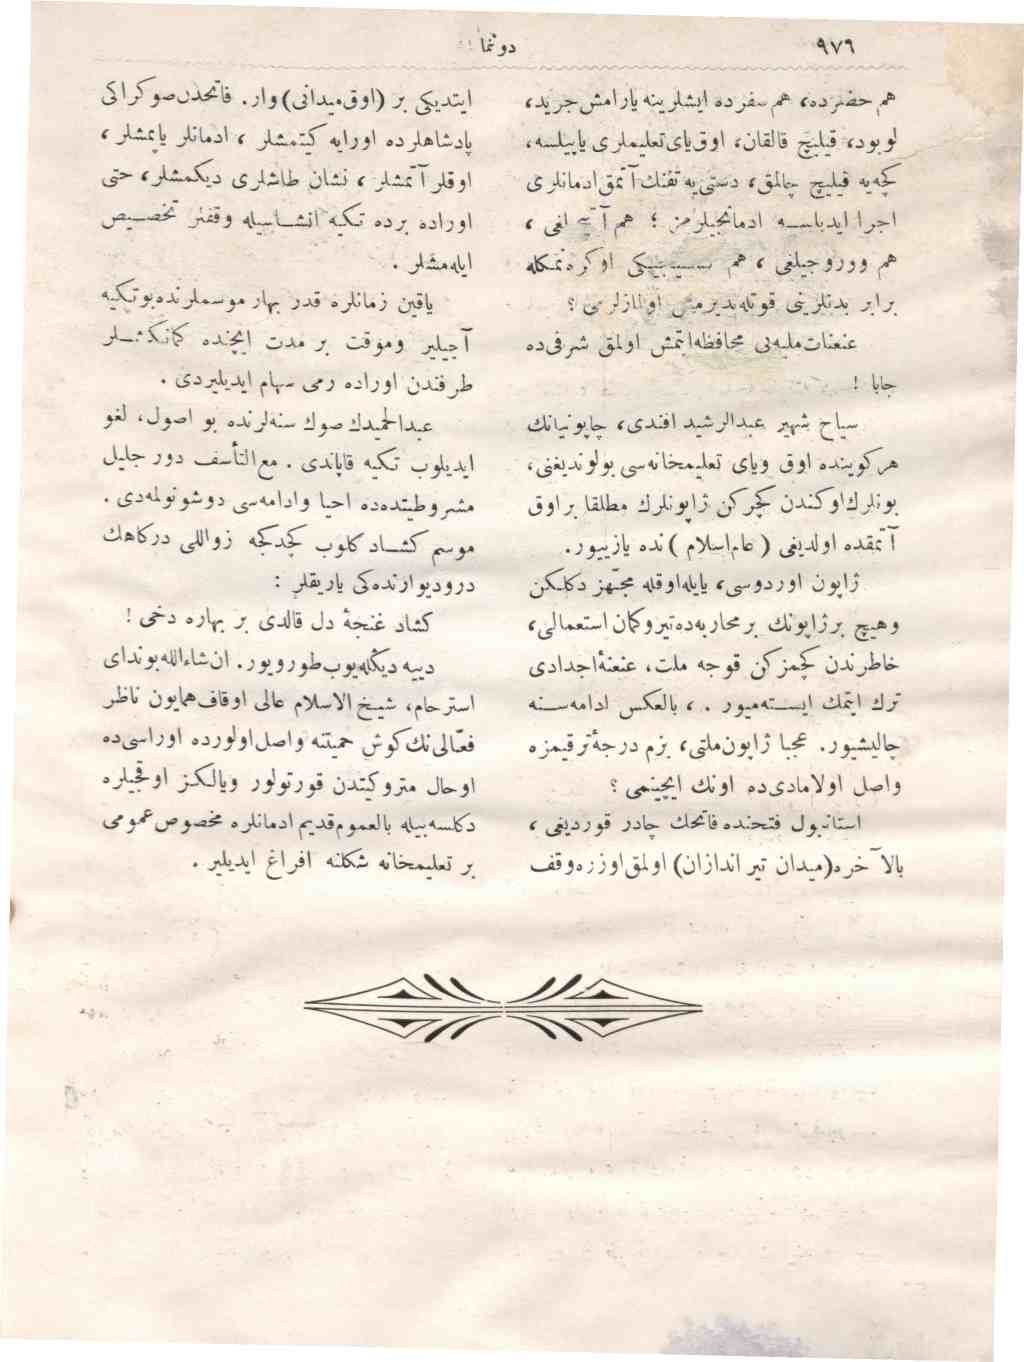 ٩٧٦
دوننما
هم حضرده، هم سفرده ایشلرینه یارامش جرید،
لوبود، قیلیچ قالقان، اوق یای تعلیملری یاپیلسه،
کچه‌یه قیلیچ چالمق، دستی‌یه تفنك آتمق ادمانلری
اجرا ایدیلسه ادمانجیلرمز ؛ هم آتیجیلغی ،
هم ووروجیلغی ، هم اوکره‌نمکله
برابر بدنلرینی قوتلندیرمش اولمازلرمی؟
عنعنات ملیه‌یی محافظه ایتمش اولمق شرفی‌ده
جابا !
سیاح شهیر عبدالرشید افندی، چاپونیانك
هرکوینده اوق ویای تعلیمخانه‌سی بولوندیغنی،
بونلرك اوکندن کچرکن ژاپونلرك مطلقا براوق
آتمقده اولدیغی ( عالم اسلام ) نده یازییور.
ژاپون اوردوسی، یایله اوقله مجهز دکلکن
وهیچ برژاپونك برمحاربه‌ده تیروکمان استعمالی،
خاطرندن کچمزکن قوجه ملت، عنعنهٔ اجدادی
ترك ایتمك ایسته‌میور . ، بالعکس ادامه‌سنه
چالیشیور. عجبا ژاپون ملتی، بزم درجهٔ ترقیمزه
واصل اولامادی‌ده اونك ایچینمی ؟
استانبول فتحنده فاتحك چادر قوردیغی ،
بالآخره (میدان تیر اندازان) اولمق اوزره وقف
ایتدیکی بر (اوق میدانی) وار. فاتحدن صوکراکی
پادشاهلرده اورایه کیتمشلر ، ادمانلر یاپمشلر ،
اوقلر آتمشلر ، نشان طاشلری دیکمشلر، حتی
اوراده برده تکیه انشاسیله وقفلر تخصیص
ایله‌مشلر .
یاقین زمانلره قدر بهار موسملرنده بو تکیه
آچیلیر وموقت بر مدت ایچنده کمانکشلر
طرفندن اوراده رمی سهام ایدیلیردی .
عبدالحمیدك صوك سنه‌لرنده بو اصول، لغو
ایدیلوب تکیه قاپاندی . مع التأسف دور جلیل
مشروطیتده‌ده احیا وادامه‌سی دوشونولمه‌دی .
موسم کشاد کلوب کچدکجه زواللی درکاهك
درودیوارنده‌کی یاریقلر :
کشاد غنجهٔ دل قالدی بر بهاره دخی !
دییه دیکله‌یوب طورویور. ان شاءالله بوندای
استرحام، شیخ الاسلام عالی اوقاف همایون ناظر
فعّالی‌نك کوش حمیتنه واصل اولورده اوراسی‌ده
اوحال متروکیتدن قورتولور ویالکز اوقجیلره
دکلسه‌بیله بالعموم قدیم ادمانلره مخصوص عمومی
بر تعلیمخانه شکلنه افراغ ایدیلیر .